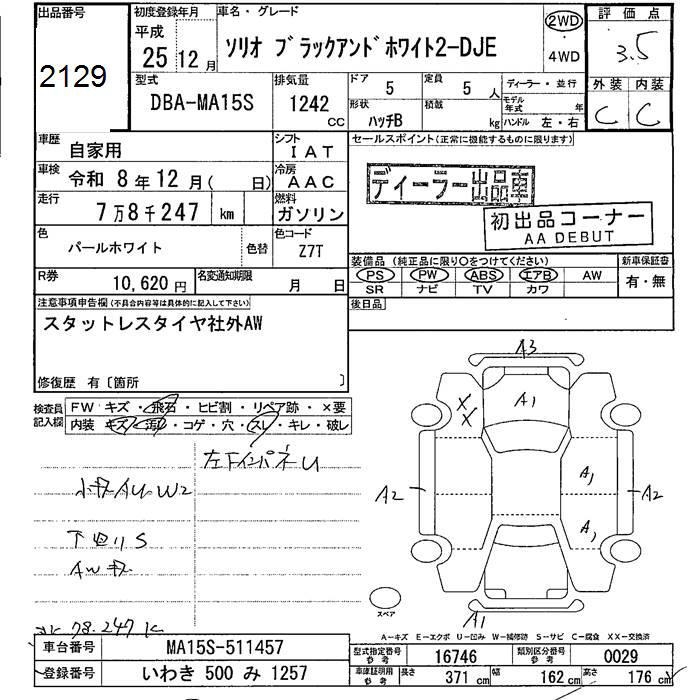 出品番号
2129
初度登録年月
平成
25 12月
車名・グレード
ソリオ ブラックアンドホワイト2-DJE
2WD
・
4WD
評価点
3.5
外装 内装
C C
型式
DBA-MA15S
排気量
1242
CC
ドア 5
定員 5人
形状 ハッチB
積載 kg
ディーラー・並行
モデル年式 年
ハンドル 左・右
車歴 自家用
シフト IAT
車検 令和 8年12月( 日)
冷房 AAC
走行 7万8千247 km
燃料 ガソリン
色 パールホワイト 色替
色コード Z7T
R券 10,620円
名変通知期限 月 日
セールスポイント(正常に機能するものに限ります)
ディーラー出品車
初出品コーナー
AA DEBUT
装備品(純正品に限り○をつけてください)
PS PW ABS エアB AW
SR ナビ TV カワ
新車保証書
有・無
後日品
注意事項申告欄(不具合内容等は具体的に記入して下さい)
スタットレスタイヤ社外AW
修復歴 有〔箇所 〕
検査員記入欄
FW キズ・飛石・ヒビ割・リペア跡・×要
内装 キズ・汚れ・コゲ・穴・スレ・キレ・破レ
左下インパネU
小キズAU W2
下回りS
AWキズ
78.247 K
A3
A1
XX
A2
A1
A1
A2
A1
スペア
A-キズ E-エクボ U-凹み W-補修跡 S-サビ C-腐食 XX-交換済
車台番号 MA15S-511457
登録番号 いわき 500 み 1257
型式指定番号 参考 16746
類別区分番号 参考 0029
車庫証明用 参考 長さ 371 cm 幅 162 cm 高さ 176 cm